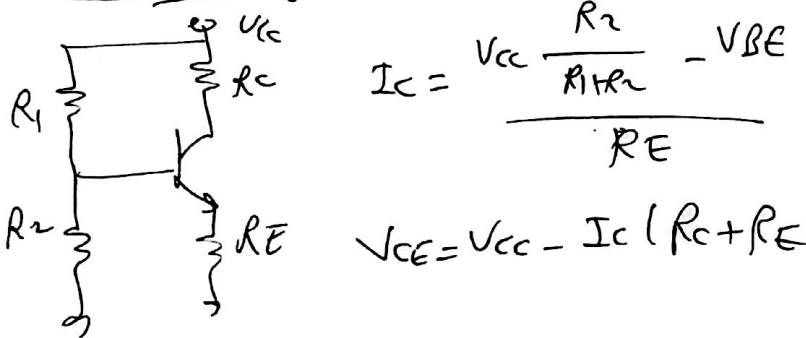 Vcc
R1
Rc
R2
RE
Ic = Vcc R2 / R1+R2 - VBE / RE
VCE = Vcc - Ic ( Rc + RE